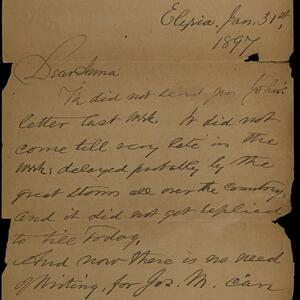 Elyria, Jan. 31st,
1897
Dear Anna
We did not send you John's
letter last week. It did not
come till very late in the
week; delayed probably by the
great storms all over the country,
and it did not get replied
to till today,
And now there is no need
of writing, for Jos. M. can